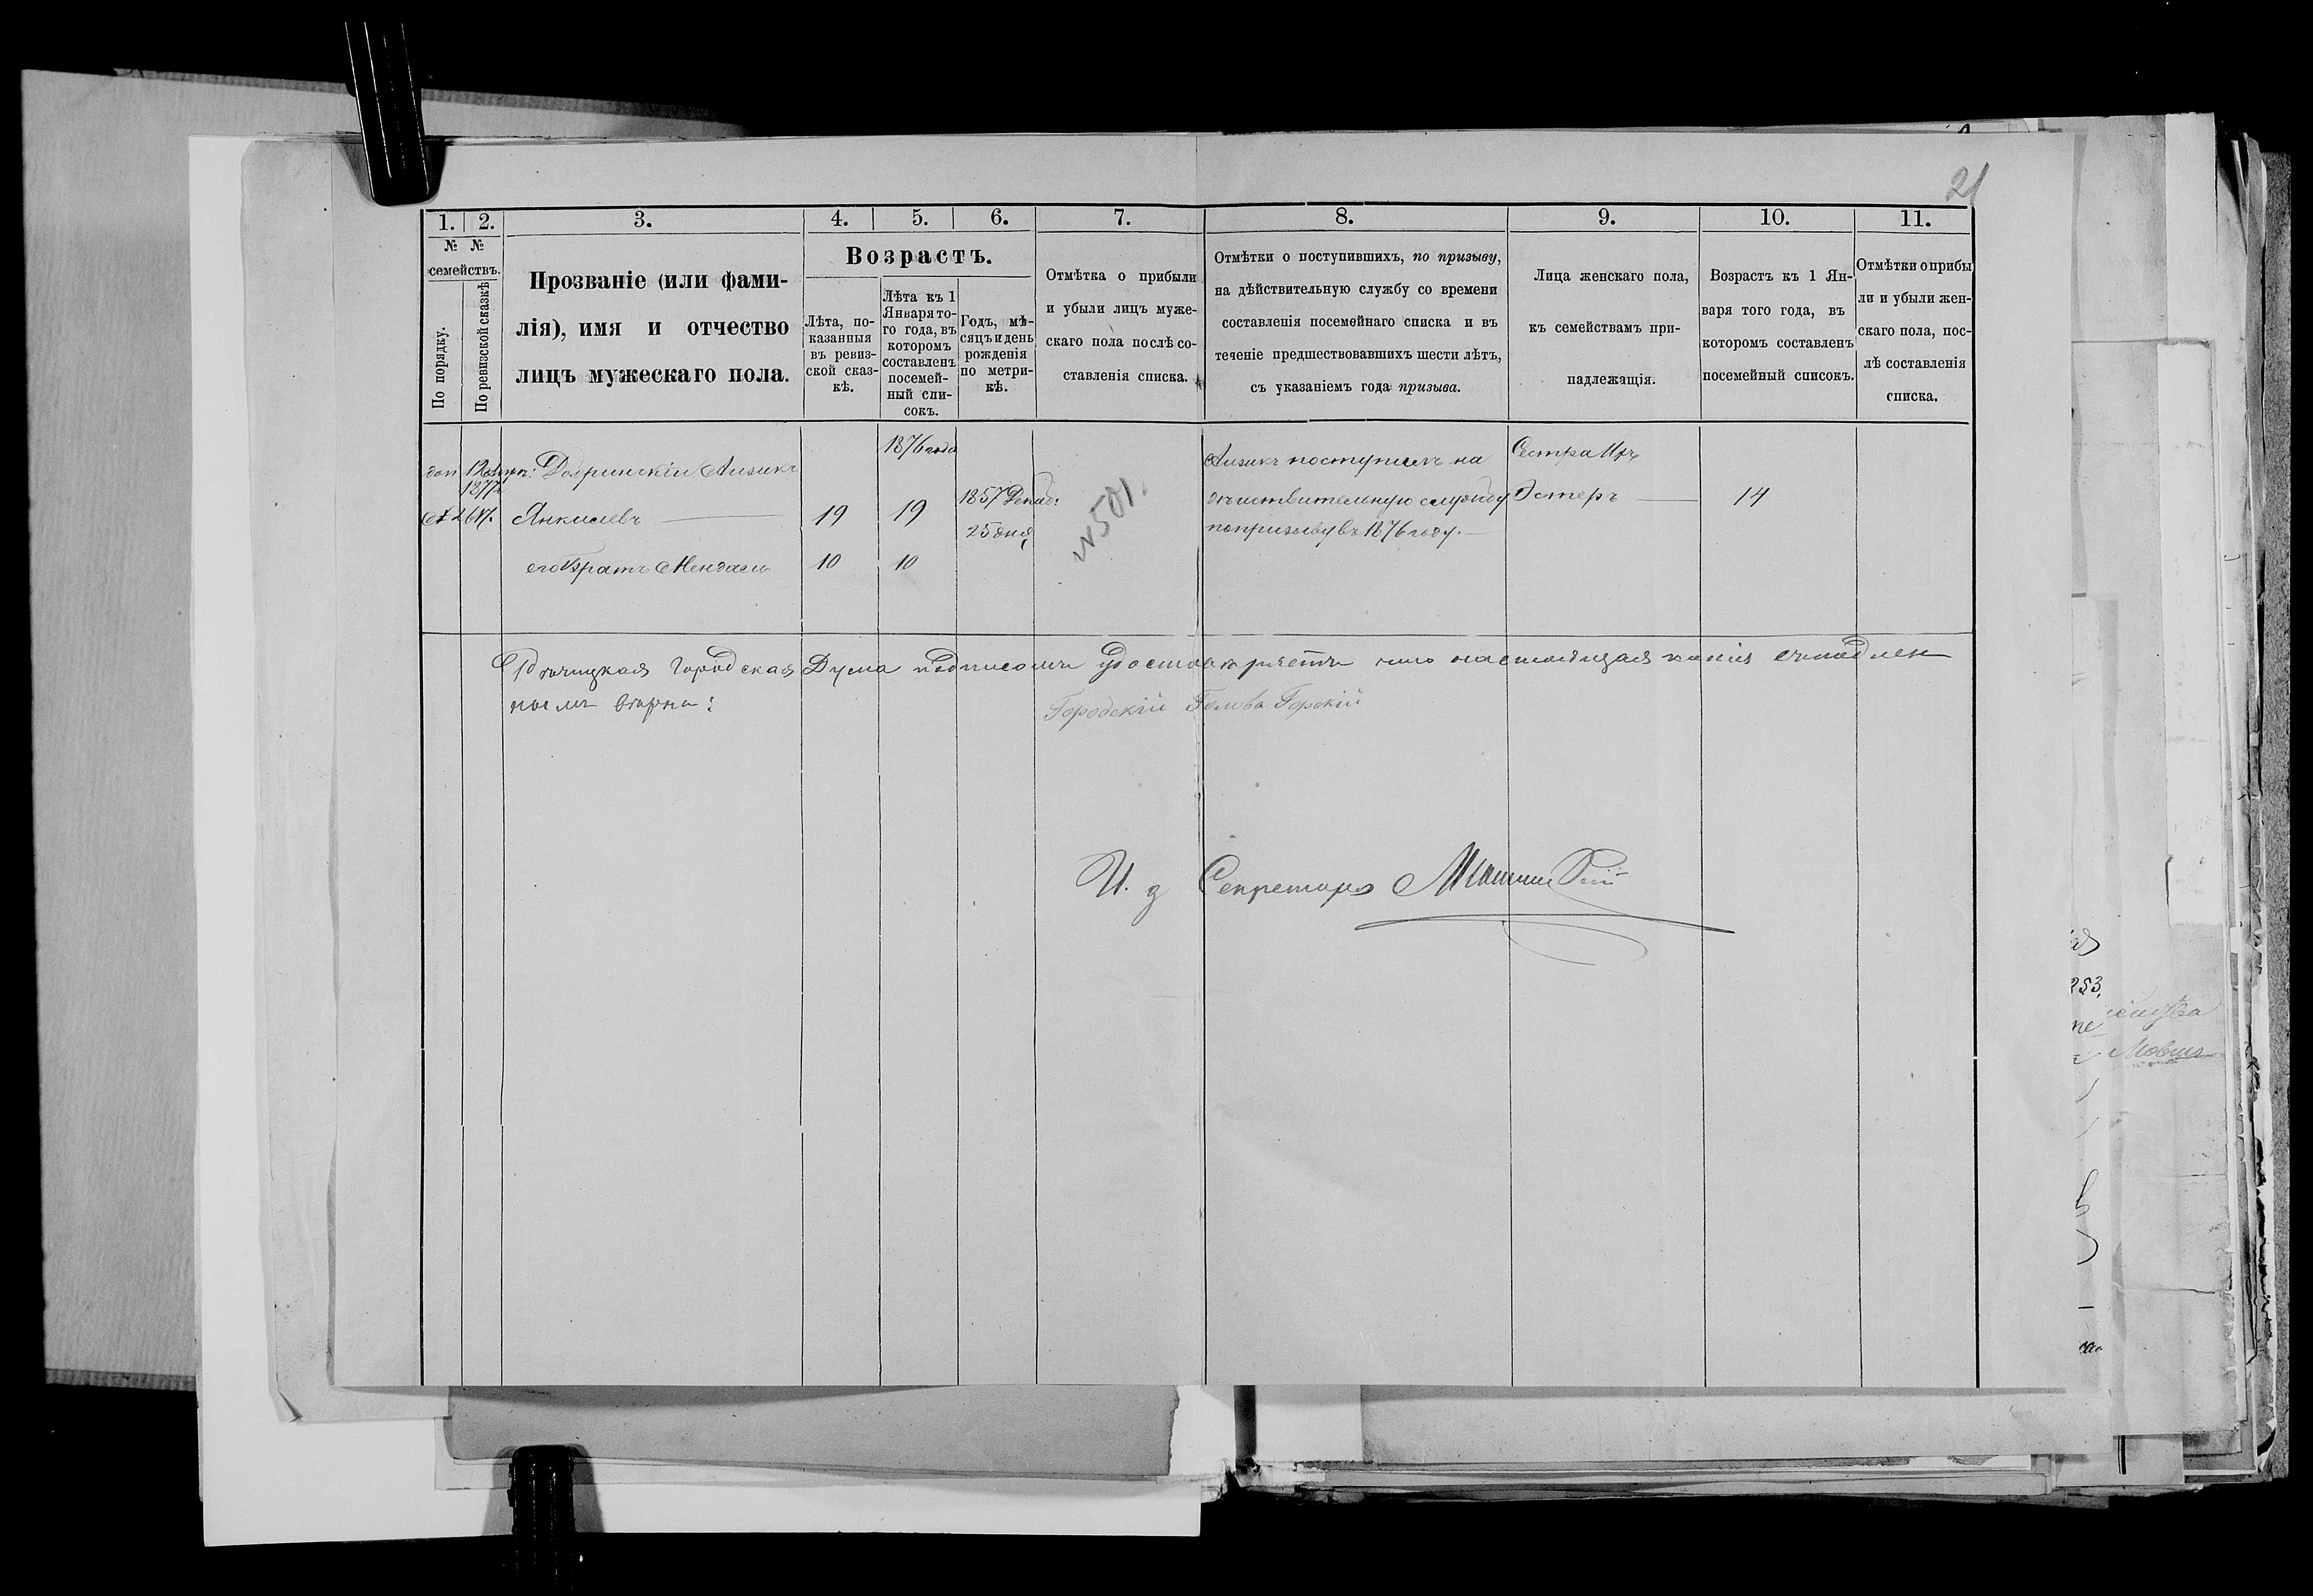 21
1. 2. 3. 4. 5. 6. 7. 8. 9. 10. 11.
№ №
семействъ.
По порядку.
По ревизской сказкѣ
Прозваніе (или фами-
лія), имя и отчество
лицъ мужескаго пола.
Возрастъ.
Лѣта, по-
казанныя
въ ревиз-
ской сказ-
кѣ.
Лѣта къ 1
Января то-
го года, въ
которомъ
составленъ
посемей-
ный спи-
сокъ.
Годъ, мѣ-
сяцъ и день
рожденія
по метри-
кѣ.
Отмѣтка о прибыли
и убыли лицъ муже-
скаго пола послѣ со-
ставленія списка.
Отмѣтки о поступившихъ, по призыву,
на дѣйствительную службу со времени
составленія посемейнаго списка и въ
теченіе предшествовавшихъ шести лѣтъ,
съ указаніемъ года призыва.
Лица женскаго пола,
къ семействамъ при-
надлежащія.
Возрастъ къ 1 Ян-
варя того года, въ
которомъ составленъ
посемейный списокъ.
Отмѣтки о прибы
ли и убыли жен-
скаго пола, пос-
лѣ составленія
списка.
1876 года
доп 12
1877
Айзикъ
Янкилевъ 19 19 1857 Декаб:
25 дня
его братъ Мендель 10 10
№501.
Айзикъ поступилъ на
дѣйствительную службу
по призыву въ 1876 году.
Сестра Ихъ
Эстеръ 14
Городская Дума подписомъ удостовѣряетъ что настоящая копія съ подлин
нымъ вѣрна:
Городскій Голова Горскій
И. д Секретаря
253,